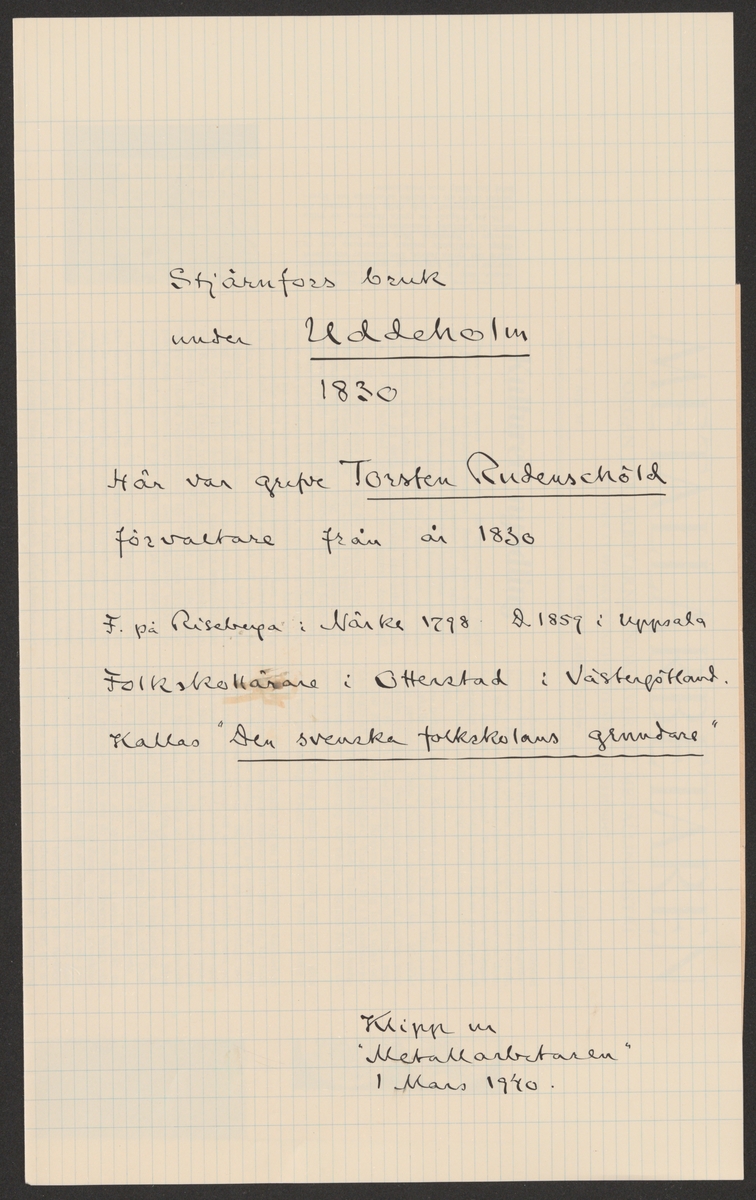 Stjärnfors bruk
under Uddeholm
1830
Här var grefve Torsten Rudenschöld
förvaltare från år 1830
F. på Riseberga i Närke 1798. D. 1859 i Uppsala
Folkskollärare i Otterstad i Västergötland.
Kallas "Den svenska folkskolans grundare"
Klipp ur
"Metallarbetaren"
1 Mars 1940.